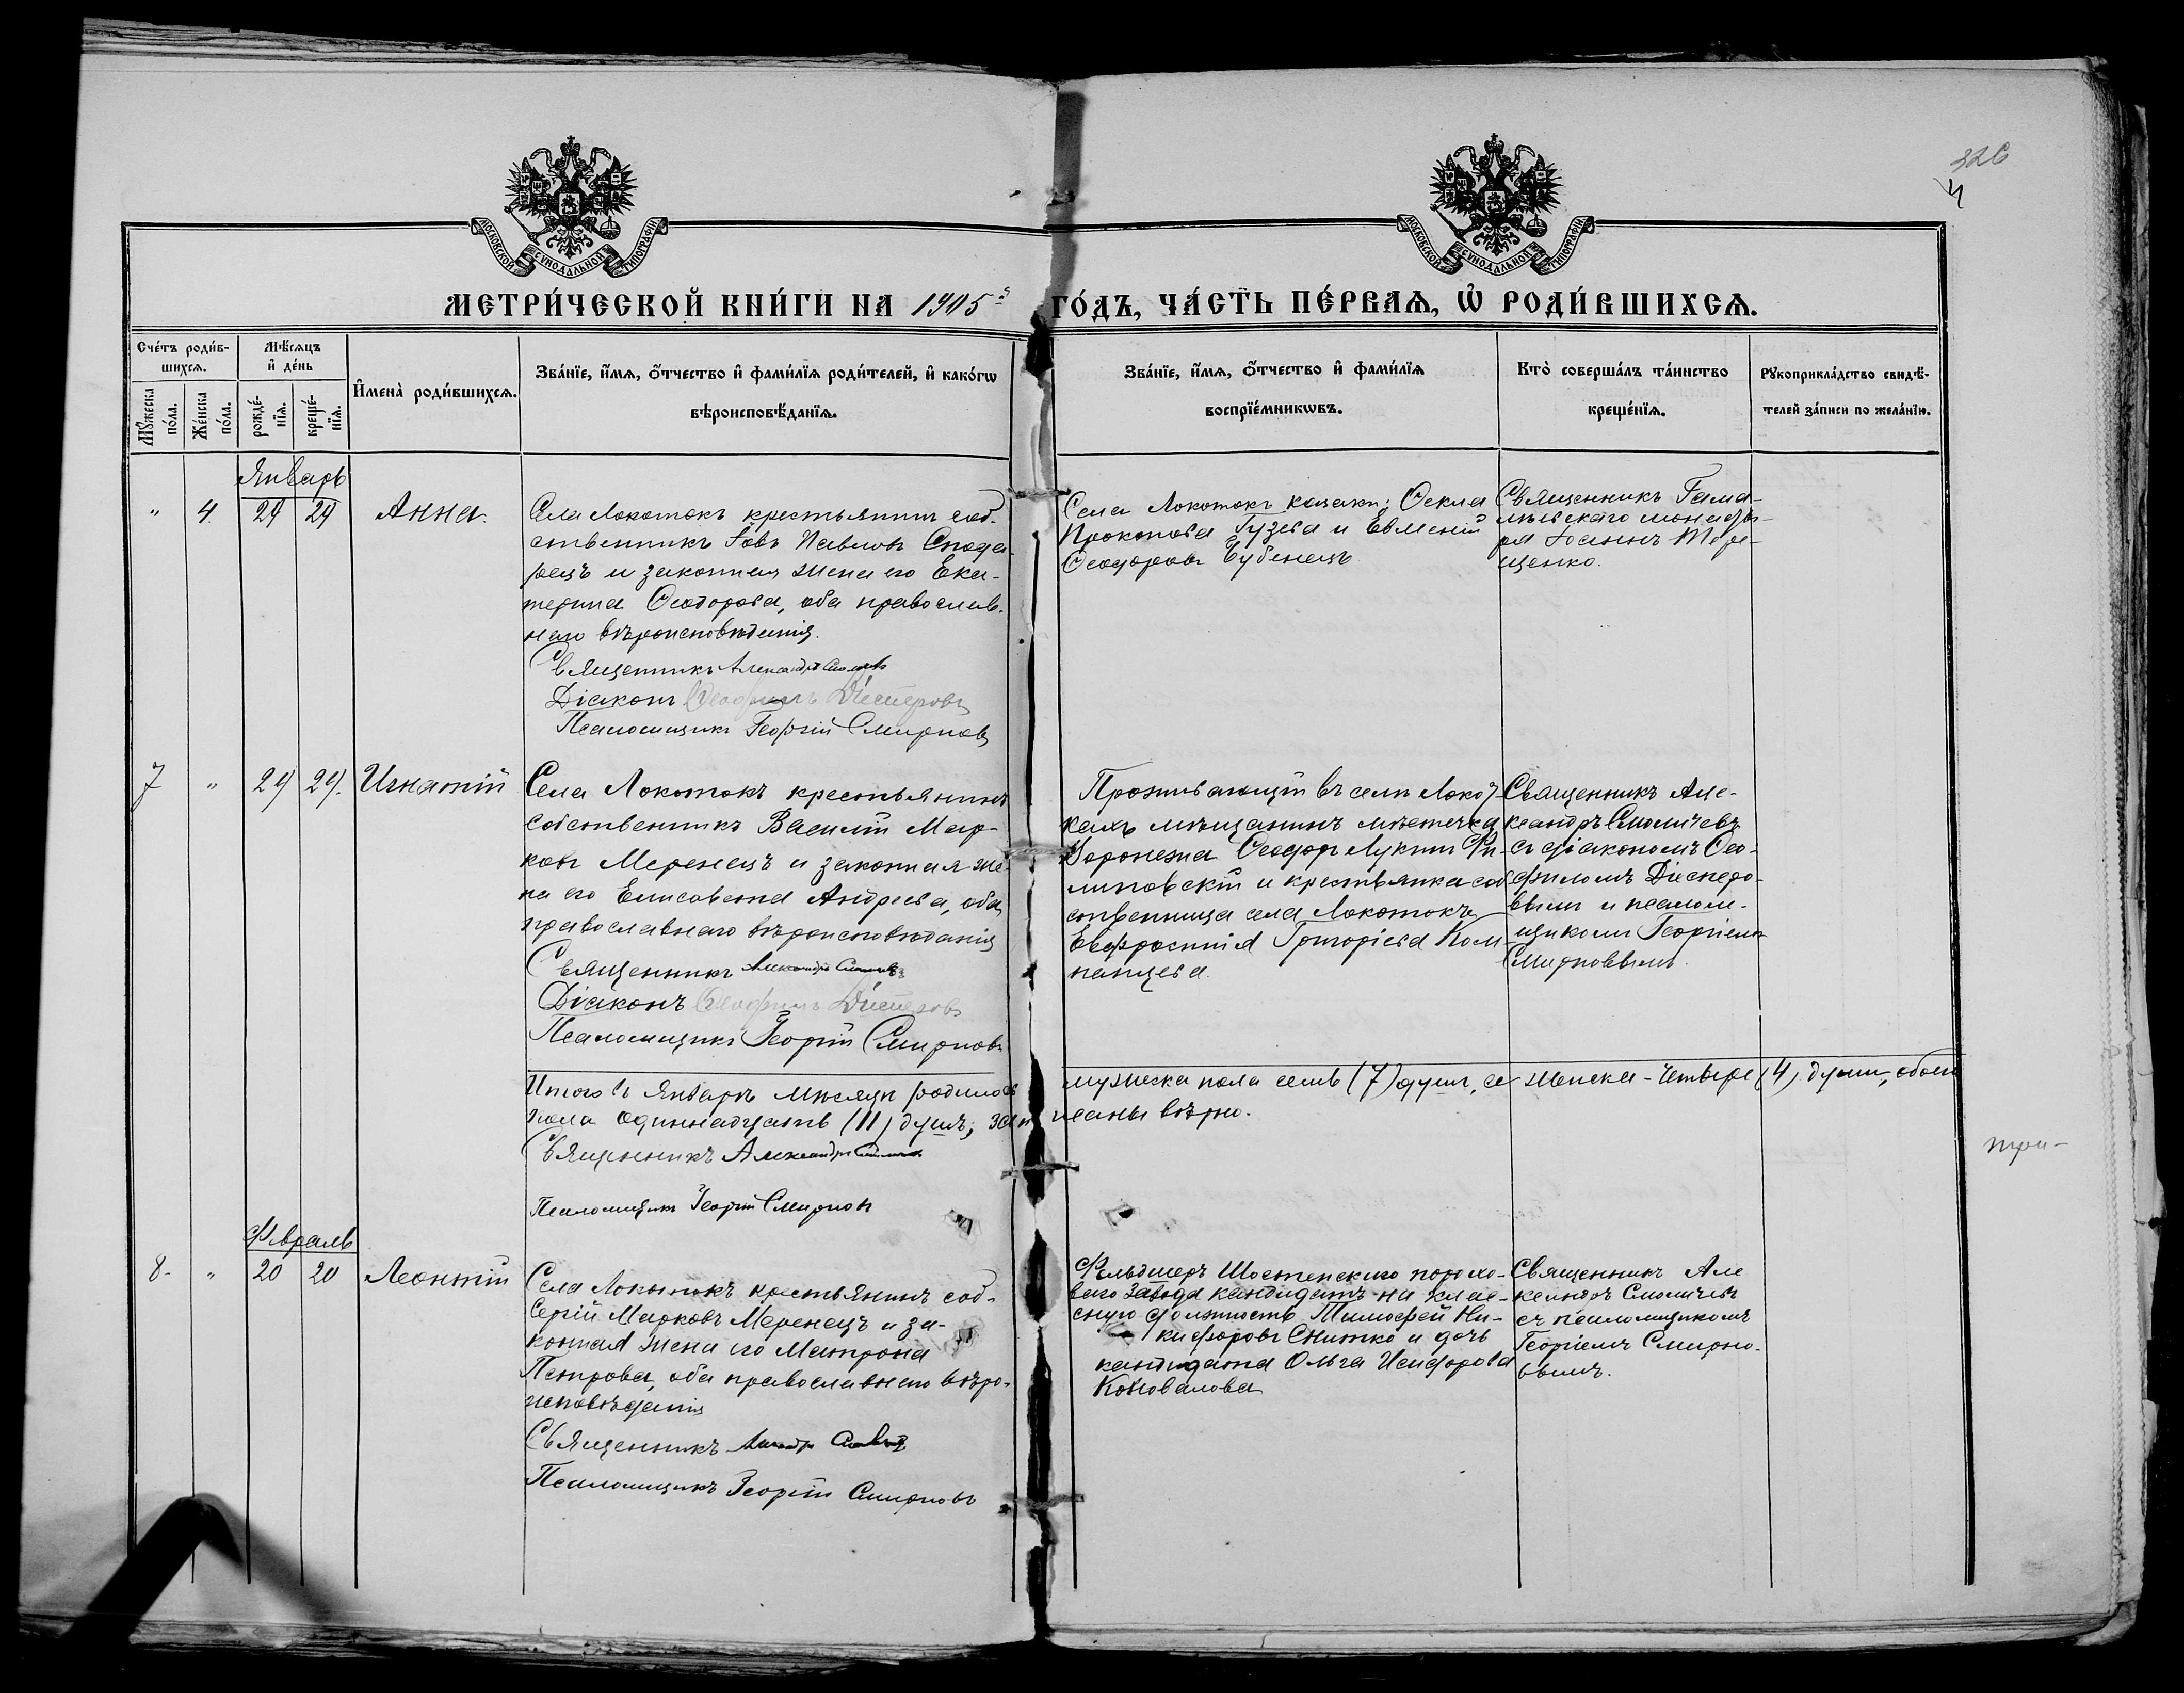 326
4
МОСКОВСКОЙ СѴНОДАЛЬНОЙ ТИПОГРАФІИ
МОСКОВСКОЙ СѴНОДАЛЬНОЙ ТИПОГРАФІИ
МЕТРИ́ЧЕСКОЙ КНИ́ГИ НА 1905й ГО́ДЪ, ЧА́СТЬ ПЕ́РВАѦ, Ѡ҆ РОДИ́ВШИХСѦ.
Сче́тъ роди́в-
шихсѧ.
Мꙋ́жеска по́ла.
Же́нска по́ла.
Мѣ́сѧцъ
и҆ де́нь
рожде́-
нїѧ.
креще́-
нїѧ.
И҆мена̀ роди́вшихсѧ.
Зва́нїе, и҆́мѧ, ѻ҆́тчество и҆ фами́лїѧ роди́телей, и҆ како́гѡ
вѣроисповѣ́данїѧ.
Зва́нїе, и҆́мѧ, ѻ҆́тчество и҆ фами́лїѧ
воспрїе́мникѡвъ.
Кто̀ соверша́лъ та́инство
креще́нїѧ.
Рꙋкоприкла́дство свидѣ́-
телей за́писи по жела́нїю.
Январь
" 4 29 29 Анна.
Села Локотокъ крестьянинъ соб-
ственникъ Іовъ Павловъ
и законная жена его Ека-
терина Ѳеодорова, оба православ-
наго вѣроисповѣданія.
Священникъ Александръ Смоличевъ
Діаконъ Ѳеофилъ Діесперовъ
Псаломщикъ Георгій Смирновъ
Села Локотокъ казаки: Ѳекла
Прокопова Гузева и Евменій
Ѳеодоровъ Бубенецъ
Священникъ Гама-
лѣевскаго монасты-
ря Іоаннъ Тере-
щенко.
7 " 29 29. Игнатій
Села Локотокъ крестьянинъ
собственникъ Василій Мар-
ковъ Меренецъ и законная же-
на его Елисавета Андреева, оба
православнаго вѣроисповѣданія
Священникъ Александръ Смоличевъ
Діаконъ Ѳеофилъ Діесперовъ
Псаломщикъ Георгій Смирновъ
Проживающій въ селѣ Локот-
кахъ мѣщанинъ мѣстечка
Воронежа Ѳеодоръ Лукинъ Фи-
липовскій и крестьянка соб-
ственница села Локотокъ
Евфросинія Григоріева Ком-
панцева.
Священникъ Але-
ксандръ Смоличевъ
съ діакономъ Ѳео-
филомъ Діесперо-
вымъ и псалом-
щикомъ Георгіемъ
Смирновымъ.
Итого въ Январѣ мѣсяцѣ родилось мужеска пола семь (7) душъ, а женска - четыре (4) души, обоего
пола одиннадцать (11) душъ, записаны вѣрно.
Священникъ Александръ Смоличевъ
Псаломщикъ Георгій Смирновъ
три-
Февраль
8. " 20 20 Леонтій
Села Локотокъ крестьянинъ соб-
Сергій Марковъ Меренецъ и за-
конная жена его Матрона
Петрова, оба православнаго вѣро-
исповѣданія
Священникъ Александръ Смоличевъ
Псаломщикъ Георгій Смирновъ
Фельдшеръ Шостенскаго порохо-
ваго завода кандидатъ на клас-
сную должность Тимофей Ни-
кифоровъ Снитко и дочь
кандидата Ольга Исидорова
Коновалова
Священникъ Але
ксандръ Смоличевъ
съ псаломщикомъ
Георгіемъ Смирно-
вымъ.